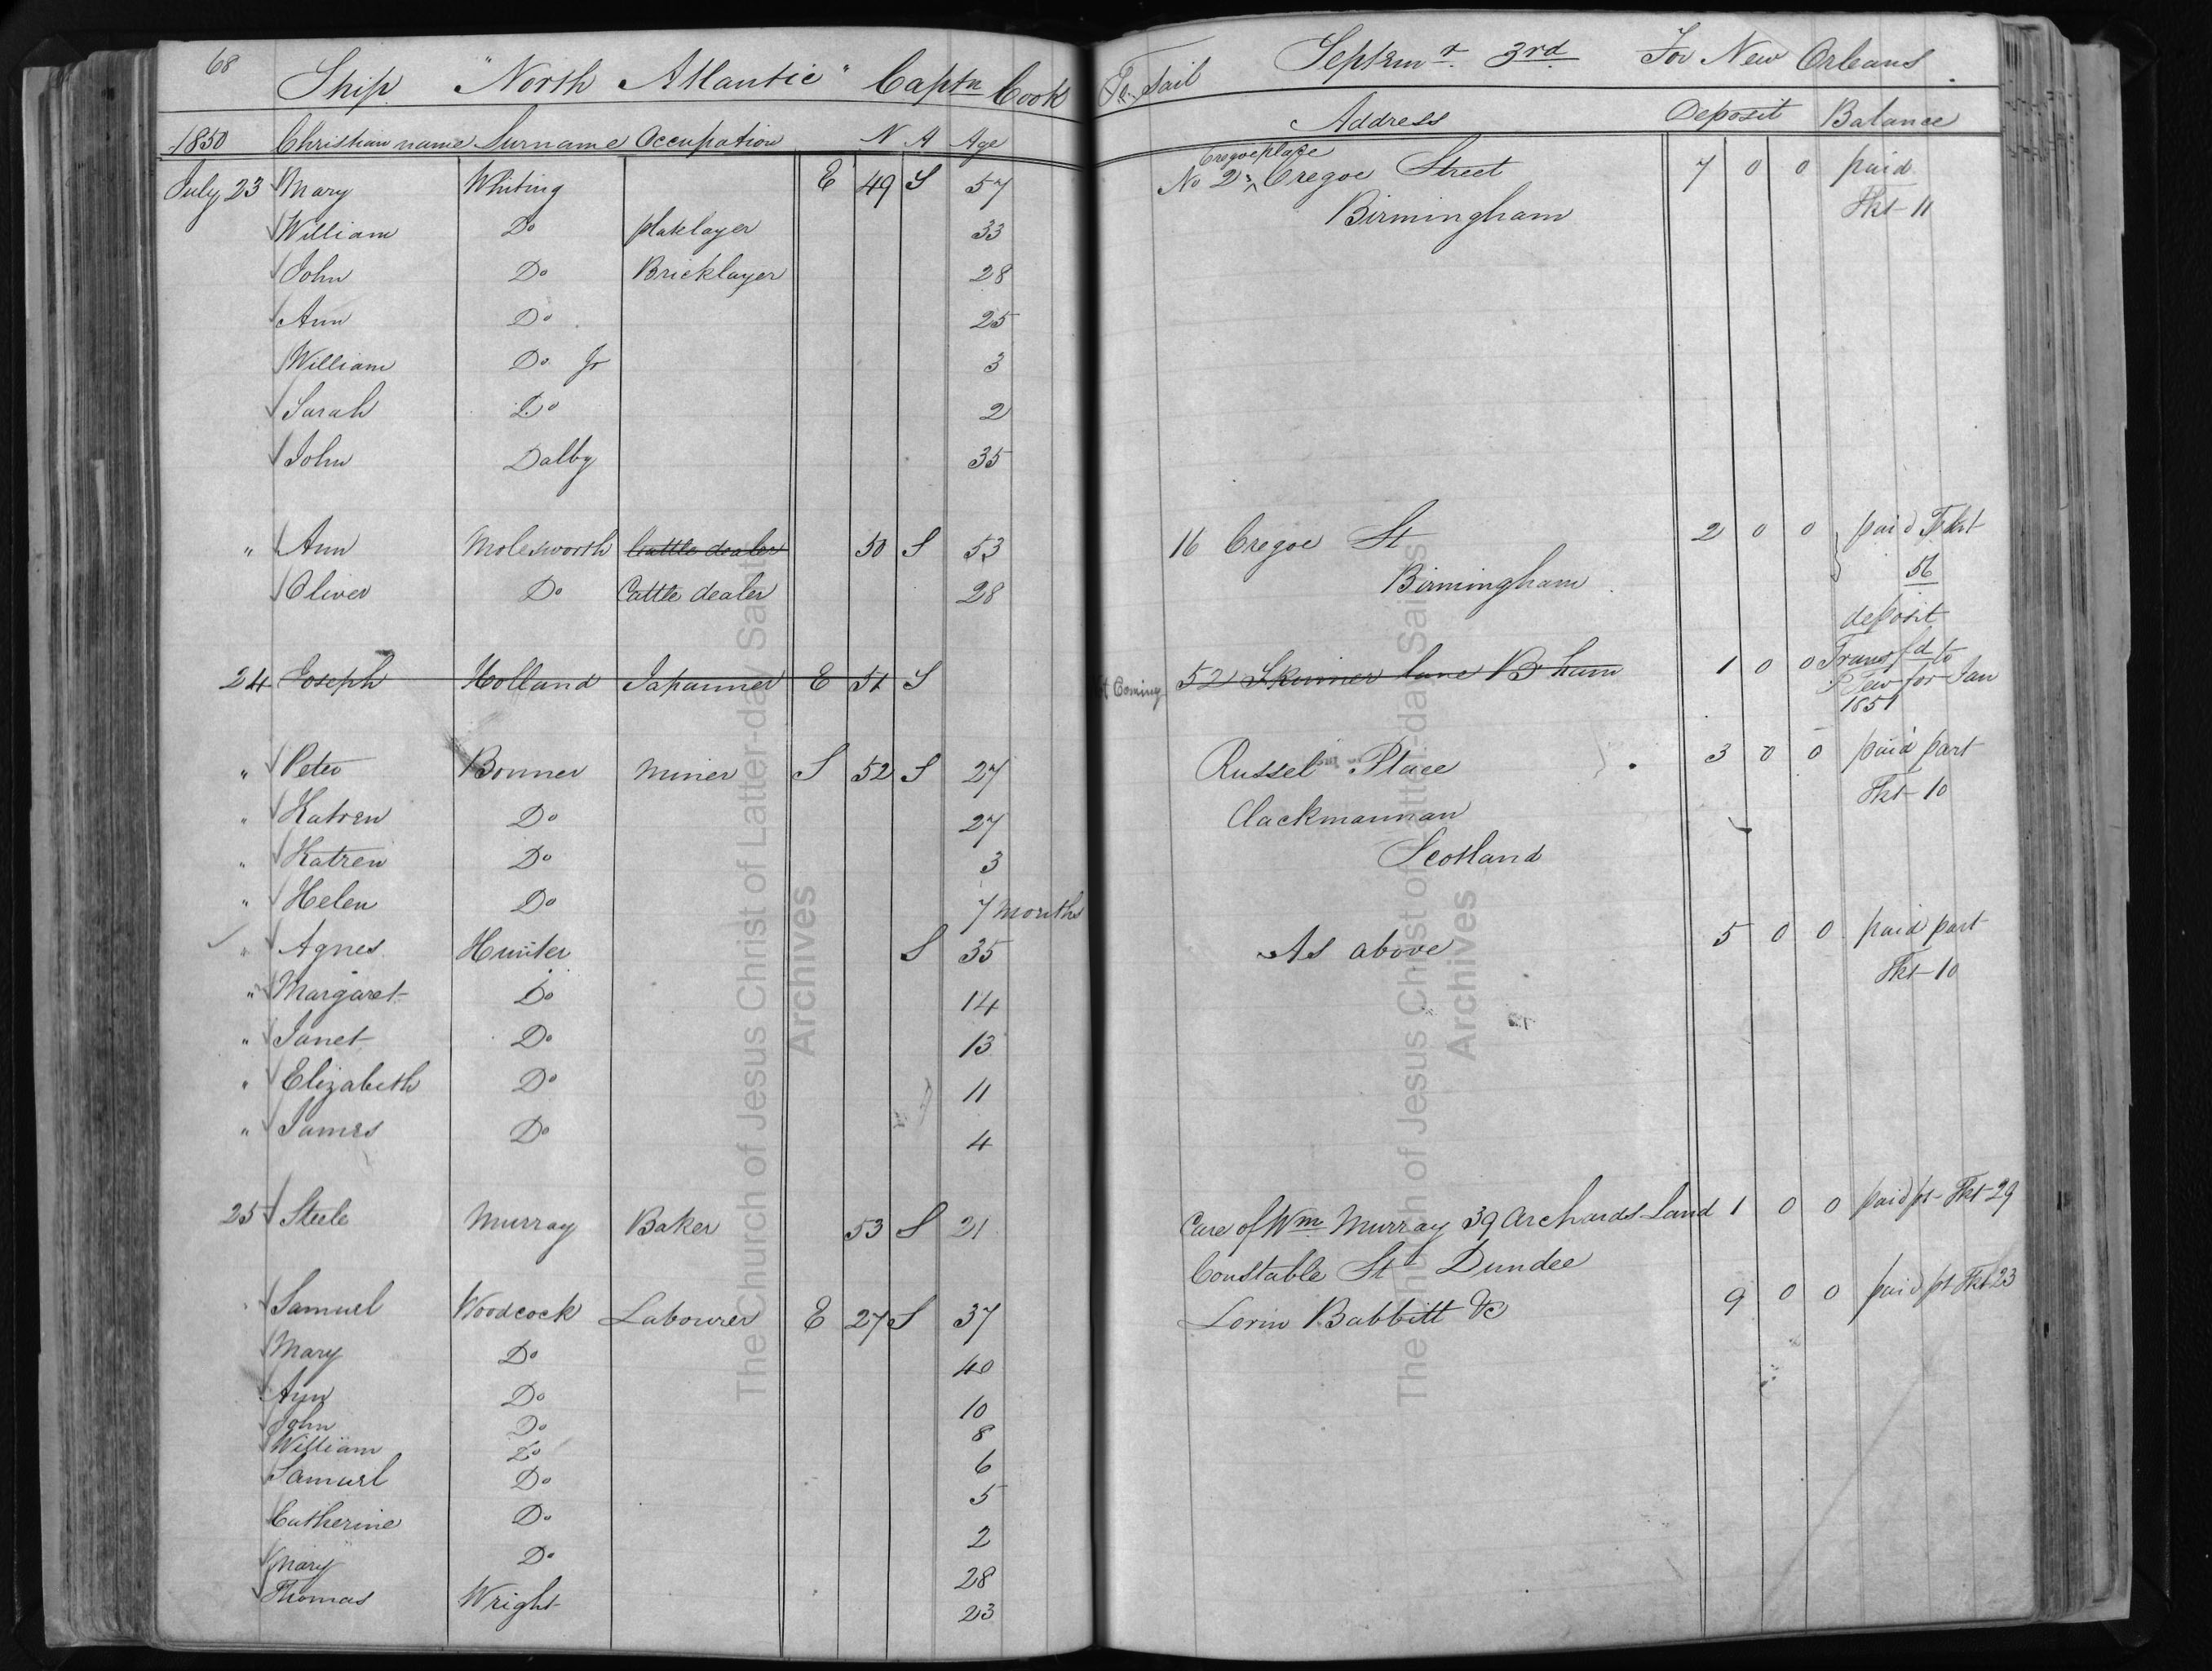 68
Ship "North Atlantic" Captn Cook To Sail Septemr. 3rd For New Orleans.
1850 Christian name Surname Occupation N A Age Address Deposit Balance
Cregoe place
July 23 Mary Whiting E 49 S 57 No 2, Cregoe Street 7 0 0 paid
William Do platelayer 33 Birmingham Tkt 11
John Do Bricklayer 28
Ann Do 25
William Do Jr 3
Sarah Do 2
John Dalby 35
" Ann Molesworth Cattle dealer 50 S 53 16 Cregoe St 2 0 0 paid Tkt
Oliver Do Cattle dealer 28 Birmingham 56
deposit
24 Joseph Holland Japanner E 51 S Coming 52 Skinner lane B ham 1 0 0 Transfd to
for Jan
1851
" Peter Bonner Miner S 52 S 27 Russel Place 3 0 0 paid part
" Katren Do 27 Clackmannan Tkt 10
" Katren Do 3 Scotland
" Helen Do 7 Months
" Agnes Hunter S 35 As above 5 0 0 paid part
" Margaret Do 14 Tkt 10
" Janet Do 13
" Elizabeth Do 11
" James Do 4
25 Steele Murray Baker 53 S 21 Care of Wm Murray 39 Archards Land 1 0 0 paid pt Tkt 29
Constable St Dundee
" Samuel Woodcock Labourer E 27 S 37 Lorin Babbitt &c 9 0 0 paid pt Tkt 23
Mary Do 40
Ann Do 10
John Do 8
William Do 6
Samuel Do 5
Catherine Do 2
Mary Do 28
Thomas Wright 23
The Church of Jesus Christ of Latter-day Saints
Archives
The Church of Jesus Christ of Latter-day Saints
Archives